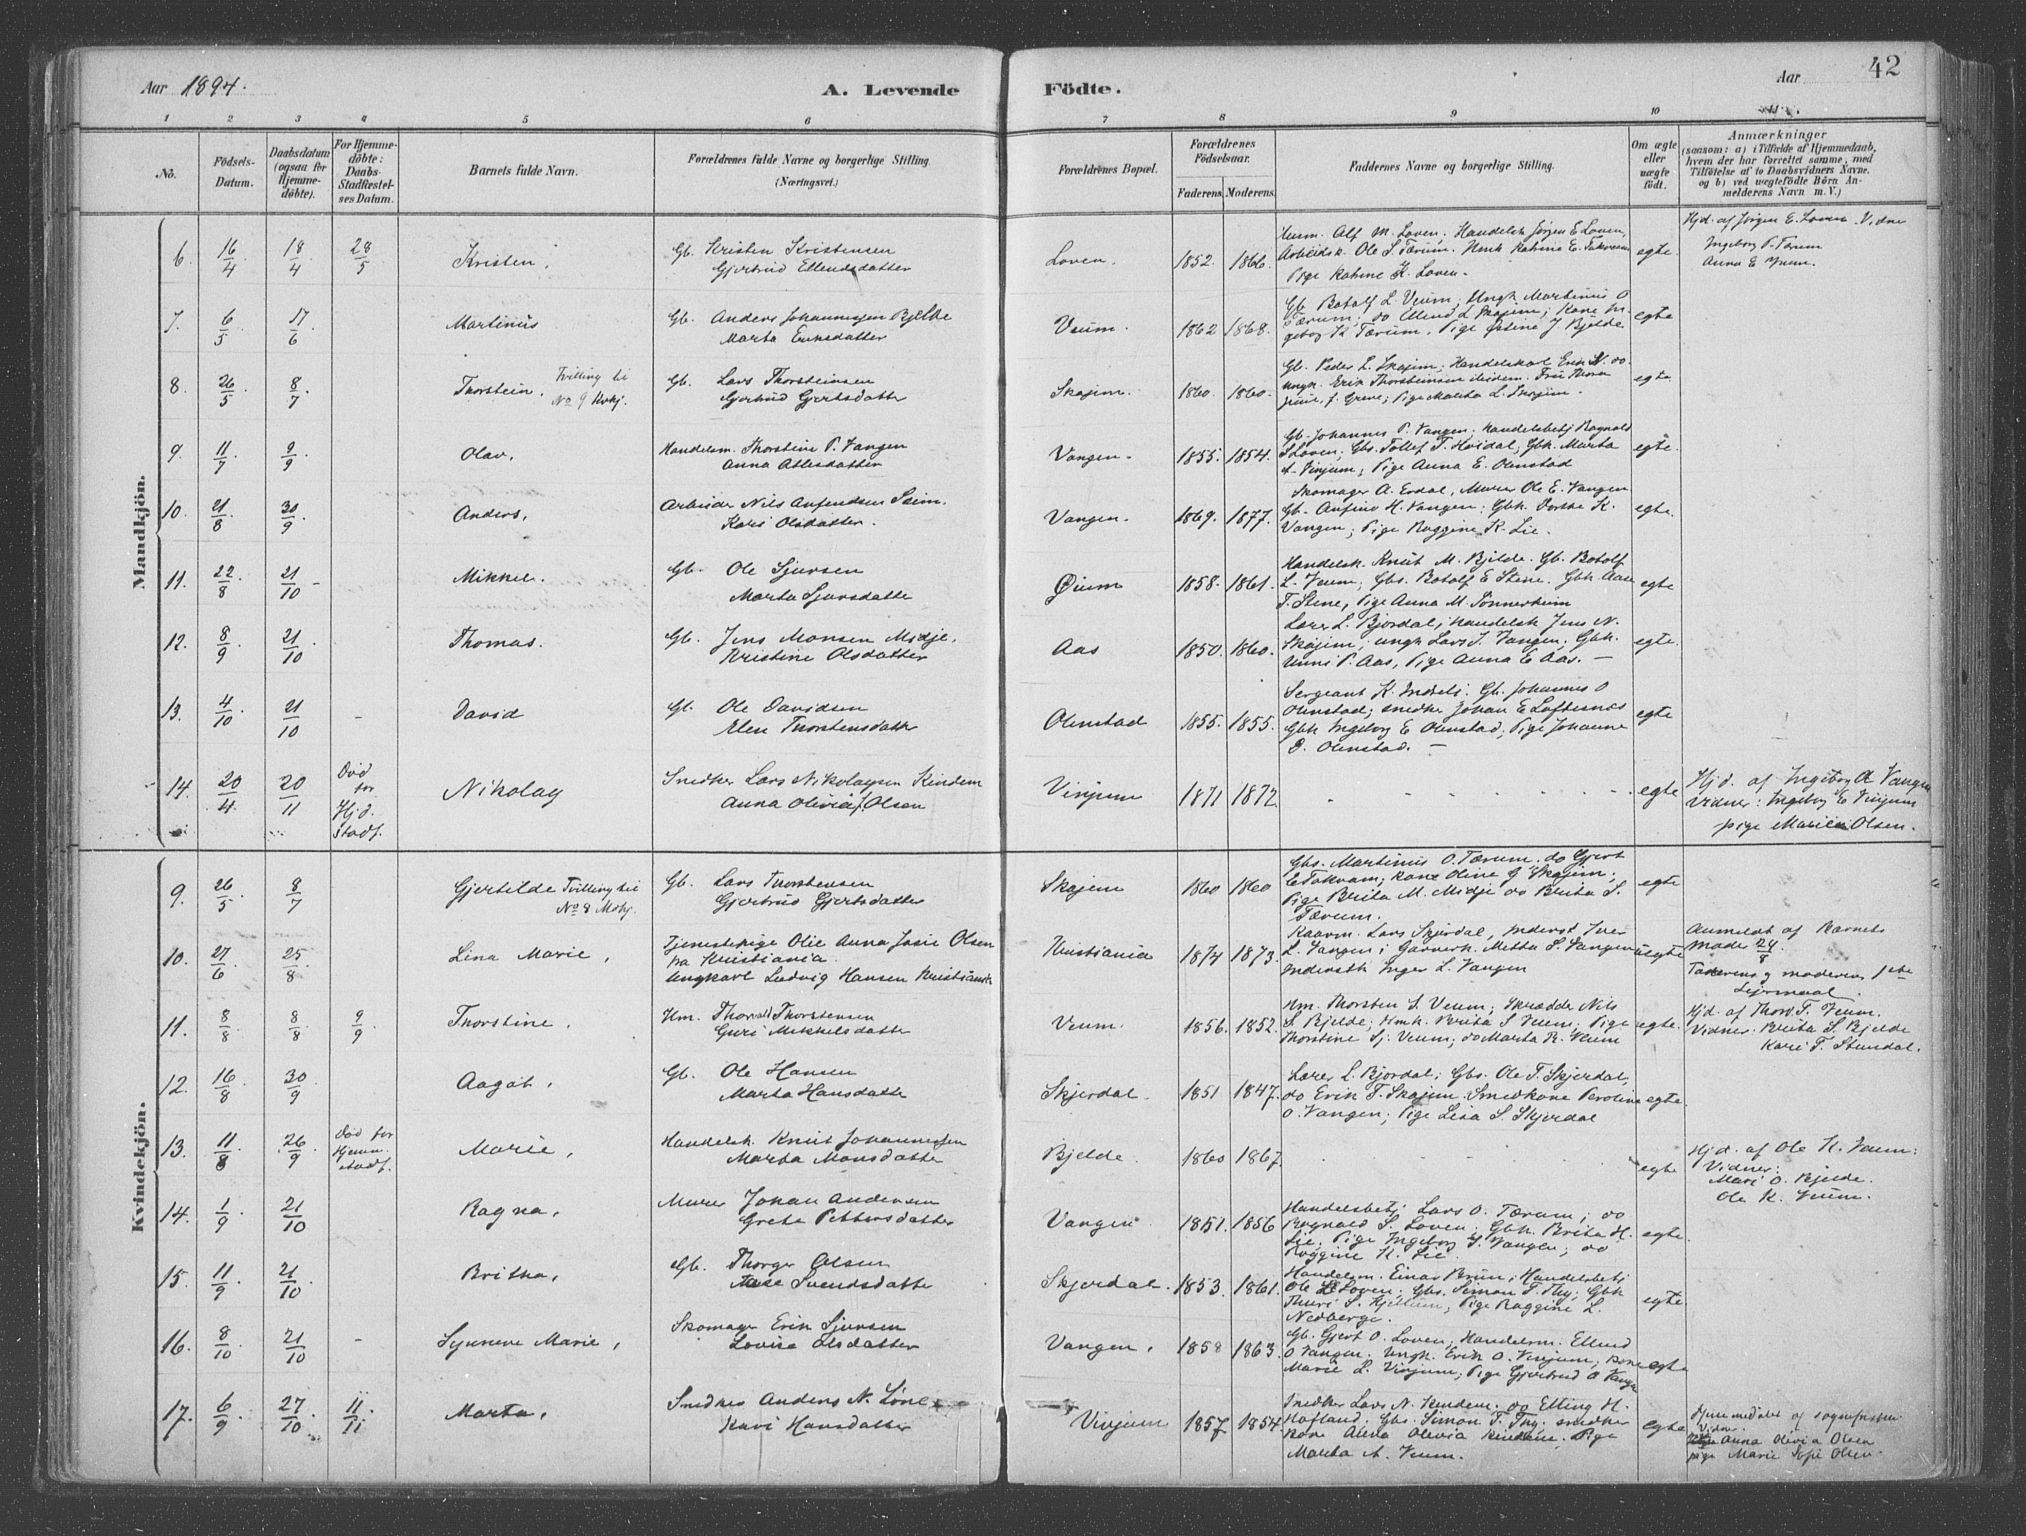 Aar 1894.
A. Levende
Födte.
Aar
42
1 2 3 4 5 6 7 8 9 10 11
No.
Födsels-Datum.
Daabsdatum (ogsaa for Hjemme-döbte).
For Hjemme-döbte: Daabs-Stadfæstel-ses Datum.
Barnets fulde Navn.
Forældrenes fulde Navne og borgerlige Stilling.
(Næringsvei.)
Forældrenes Bopæl.
Forældrenes Födselsaar.
Faderens. Moderens.
Faddernes Navne og borgerlige Stilling.
Om ægte eller uægte födt.
Anmærkninger
(saasom: a) i Tilfælde af Hjemmedaab, hvem der har forrettet samme, med Tilföielse af to Daabsvidners Navne. og b) ved uægtefödte Börn An-melderens Navn m. V.)
Mandkjön.
6. 16/4 18/4 28/5 Kristen. Gb. Kristen Kristensen
Gjertrud Ellendsdatter
Loven. 1852. 1866.
Huum. Alf M. Loven. Handelsk Jørgen E Loven,
Arbeidsk. Ole S. Tærum. Hmk Katrine E. Tokvam
Pige Katrine K. Loven.
egte.
Hjd. af Jørgen E. Loven Vidne
Ingeborg P. Tærum
Anna E Veum.
7. 6/5 17/6 Martinus Gb. Anders Johannessen Bjelde
Marta Eriksdatter
Veum. 1862 1868.
Gb. Botolf L. Veum; Ungk Martinus O
Tærum; do Ellend L Skajem; Kone In-
geborg K. Tærum, Pige Østine J Bjelde
egte
8. 26/5 8/7 Thorstein. Tvilling til No 9 Kvkj. Gb. Lars Thorsteinsen
Gjertrud Gjertsdatter
Skajem. 1860. 1860.
Gb. Peder L. Skajem; Handelskarl Erik N. do.
Ungk. Erik Thorsteinsen ibidem. Fru Thora
f. Greve; Pige Marita L. Skajem.
egte
9. 11/7 9/9 Olav. Handelsm. Thorstine P. Vangen
Anna Atlesdatter
Vangen. 1855. 1854.
Gb. Johannes P. Vangen; Handelsbetj Ragnald
S Loven; Gbs. Tollef T. Hvidal; Gbk. Marta
A. Vinjum; Pige Anna E. Olmstad
egte.
10. 21/8 30/9 Anders, Arbeider Nils Anfindsen Seim.
Kari Olsdatter.
Vangen. 1869. 1877.
Skomager A. Erdal, Murer Ole E. Vangen
Gb. Anfind H. Vangen; Gbk. Dorthe K.
Vangen; Pige Raggine K. Lie.
egte.
11. 22/8 21/10 Mikkel. Gb. Ole Sjursen
Marta Sjursdatter
Øium 1858. 1861.
Handelsk. Knut M. Bjelde. Gb. Botolf
L. Veum; Gbs. Botolf E Stene. Gbk Aase
T. Stene, Pige Anna M. Sønnerheim
egte
12. 8/9 21/10 Thomas. Gb. Jens Monsen Midje.
Kristine Olsdatter
Aas 1850. 1860.
Lærer L. Bjordal; Handelsk Jens N.
Skajem; ungk Lars I. Vangen; Gbk.
Unni P. Aas, Pige Anna E Aas. —
egte.
13. 4/10 21/10 - David Gb. Ole Davidsen
Elen Thorstensdatter
Olmstad 1855. 1855.
Sergeant K. Indreli. Gb. Johannes O
Olmstad; Snedker Johan E Loftesnes
Gbk Ingeborg E Olmstad; Pige Johanne
D. Olmstad. —
egte
14. 20/4 20/11 Død for Hjd. Stadf. Nikolay Snedker Lars Nikolaysen Kindem
Anna Olivia J. Olsen
Vinjum 1871 1872
egte
Hjd. af Ingeborg A Vangen
Vidner: Ingeborg E Vinjum
pige Marie Olsen.
Kvindekjön.
9. 26/5 8/7 Gjertilde Tvilling til No 8 Mdkj. Gb. Lars Thorstensen
Gjertrud Gjertsdatter
Skajem 1860 1860
Gbs. Martinus O. Tærum. do Gjert
E Tokvam; Kone Oline G Skajem;
Pige Brita M. Midje do Brita S.
Tærum.
egte
10. 27/6 25/8 Lina Marie, Tjenestepige Olie Anna Josie Olsen
fra Kristiania.
Ungkarl Ludvig Hansen Kristiania
Kristiania 1874 1873.
Kaarm. Lars Skjerdal, Inderst Iver
L. Vangen; Garverk. Metta S. Vangen
Inderstk Inger L. Vangen
uegte
Anmeldt af Barnets
Moder 24/8
Faderens og moderens 1ste
Leiermaal.
11. 8/8 8/8 9/9 Thorstine, Hm. Thorvald Thorstensen
Guri Mikkelsdatter
Veum. 1856. 1852.
Hm. Thorsten S. Veum; Skrædder Nils
S. Bjelde; Hmk. Brita S Veum; Pige
Thorstine Sj. Veum; do Marta K. Veum
egte.
Hjd. af Thorst. T. Veum.
Vidner. Brita S. Bjelde
Kari T. Stundal.
12. 16/8 30/9 Aagot, Gb. Ole Hansen
Marta Hansdatter
Skjerdal. 1851 1847.
Lærer L. Bjordal; Gbs. Ole T. Skjerdal,
do Erik T. Skajem. Smedkone Peroline
O. Vangen; Pige Lisa S. Skjerdal
egte.
13. 11/8 26/9 Død for Hjemm. stadf. Marie, Handelsk. Knut Johannessen
Marta Monsdatter
Bjelde. 1860 1867.
egte
Hjd. af Ole K. Veum:
Vidner:
Mari O. Bjelde.
Ole K. Veum.
14. 1/9 21/10 Ragna, Murer Johan Andersen
Grete Pettersdatter
Vangen 1851. 1856
Handelsbetj Lars O. Tærum; do
Ragnald S. Loven; Gbk. Brita H.
Lie. Pige Ingeborg S. Vangen; do
Raggine K. Lie.
egte.
15. 11/9 21/10 Britha, Gb. Thorger Olsen
Aase Svendsdatter
Skjerdal. 1853. 1861.
Handelsm. Einar Brun; Handelsbetj
Ole L Loven; Gbs. Simon T. Thy; Gbk
Thuri S. ; Pige Raggine L.
Nedberge.
egte.
16. 8/10 21/10 - Synneve Marie, Skomager Erik Sjursen
Lovise Olsdatter
Vangen, 1858 1863.
Gb. Gjert O. Loven; Handelsm. Ellend
O Vangen. Ungk. Erik O. Vinjum; Kone
Marie L. Vinjum; Pige Gjertrud O Vangen
egte
17. 6/9 27/10 11/11 Marta, Snedker Anders N. Lone
Kari Hansdatter
Vinjum 1857 1854.
Snedker Lars N. Kindem. do Elling H.
Hafland; Gbs. Simon T. Thy. Snedker
Kone Anna Olevia Kindem. Pige
Marita A. Veum.
egte
Hjemmedøbt af sognepresten
Vidner
Anna Olivia Olsen
pige Marie Sofie Olsen.